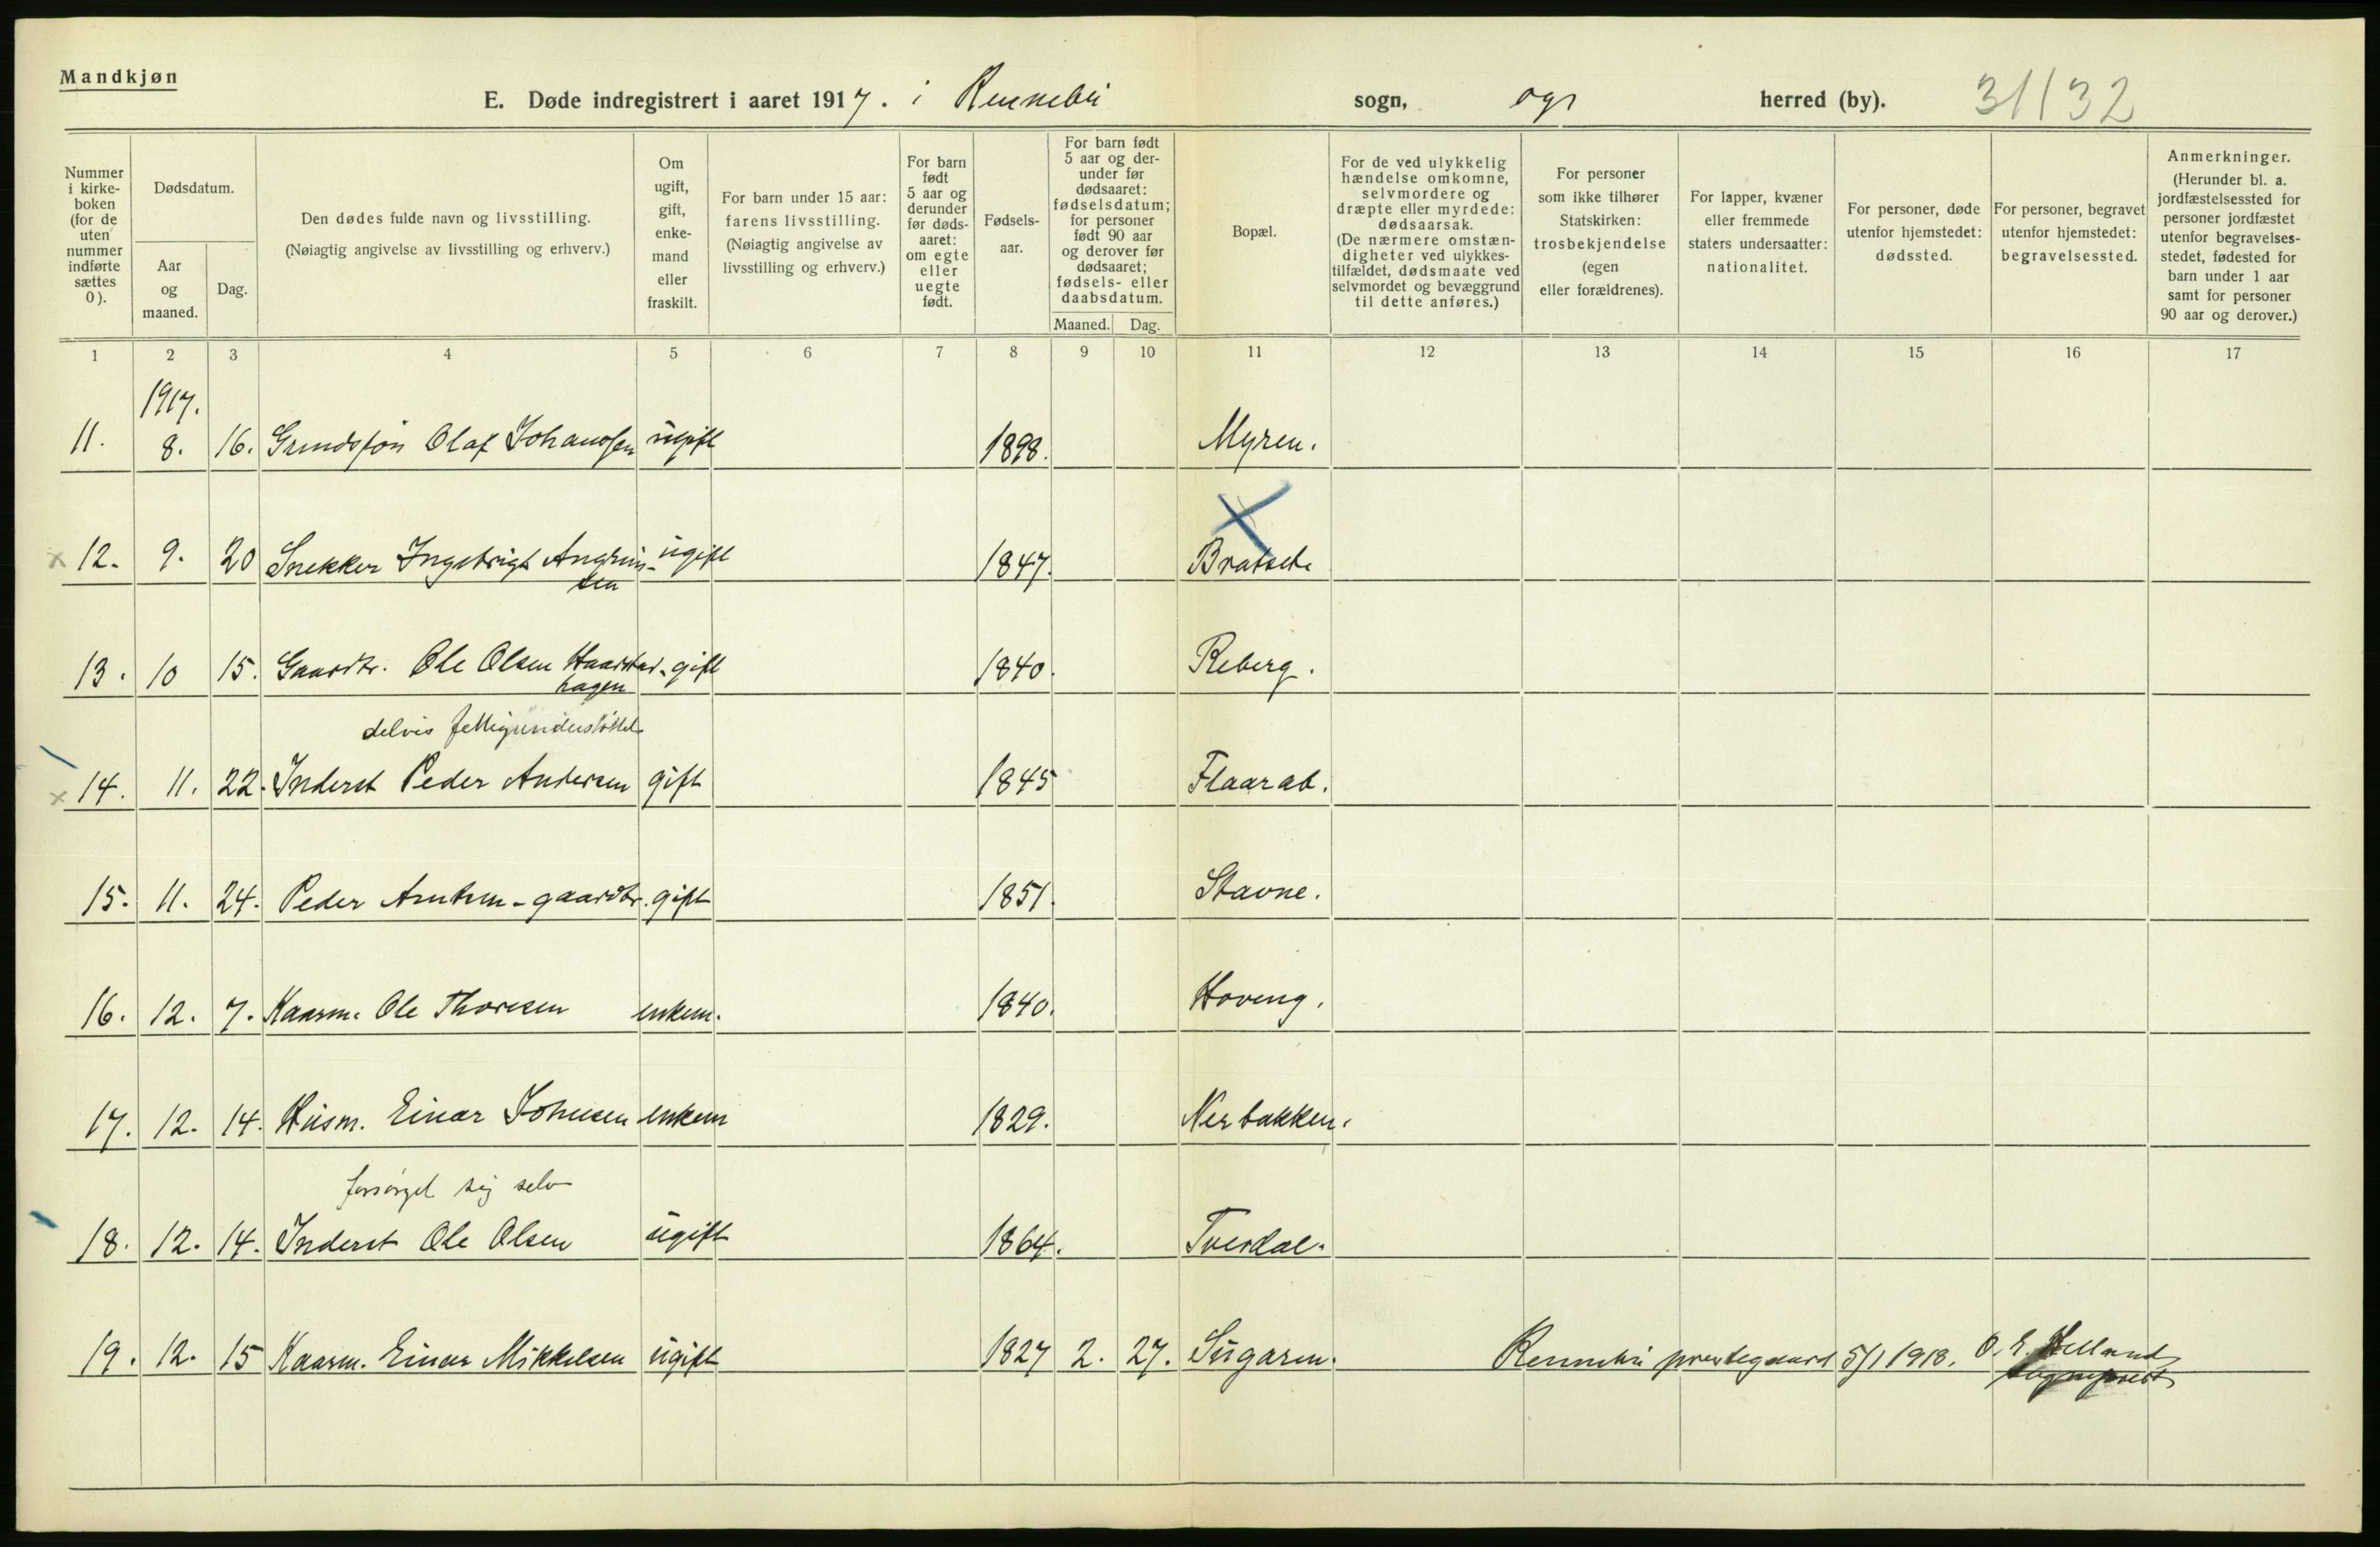 Mandkjøn
E. Døde indregistrert i aaret 1917. i Rennebu sogn, ogs herred (by). 31/132
Nummer i kirke-boken (for de uten nummer indførte sættes 0).
Dødsdatum.
Aar og maaned.
Dag.
Den dødes fulde navn og livsstilling.
(Nøiagtig angivelse av livsstilling og erhverv.)
Om ugift, gift, enke-mand eller fraskilt.
For barn under 15 aar: farens livsstilling.
(Nøiagtig angivelse av livsstilling og erhverv.)
For barn født 5 aar og derunder før døds-aaret: om egte eller uegte født.
Fødsels-aar.
For barn født 5 aar og der-under før dødsaaret: fødselsdatum; for personer født 90 aar og derover før dødsaaret; fødsels- eller daabsdatum.
Maaned. Dag.
Bopæl.
For de ved ulykkelig hændelse omkomne, selvmordere og dræpte eller myrdede: dødsaarsak.
(De nærmere omstæn-digheter ved ulykkes-tilfældet, dødsmaate ved selvmordet og bevæggrund til dette anføres.)
For personer som ikke tilhører Statskirken: trosbekjendelse (egen eller forældrenes).
For lapper, kvæner eller fremmede staters undersaatter: nationalitet.
For personer, døde utenfor hjemstedet: dødssted.
For personer, begravet utenfor hjemstedet: begravelsessted.
Anmerkninger.
(Herunder bl. a. jordfæstelsessted for personer jordfæstet utenfor begravelses-stedet, fødested for barn under 1 aar samt for personer 90 aar og derover.)
1 2 3 4 5 6 7 8 9 10 11 12 13 14 15 16 17
1917.
11. 8. 16. Olaf Johanssen ugift 1898. Myren.
x 12. 9. 20 Snekker Ingebrigt Angrim- ugift 1847. Bratset
sen
13. 10 15. Gaardbr. Ole Olsen Haarstad- gift 1840. Reberg.
hagen
delvis fattigunderstøttet
x 14. 11. 22. Inderst Peder Andersen gift 1845 Flaarab.
15. 11. 24. Peder Arntsen - gaardbr. gift 1851. Stavne.
16. 12. 7. Kaarm. Ole Thoresen enkem. 1840. Hoveng.
17. 12. 14. Husm. Einar Johnsen enkem 1829. Nerbakken.
forsørget sig selv
18. 12. 14. Inderst Ole Olsen ugift 1864. Tverdal.
19. 12. 15 Kaarm. Einar Mikkelsen ugift 1827 2. 27. Sugaren. Rennebu prestegaard 5/1 1918. O. E. Helland
sogneprest